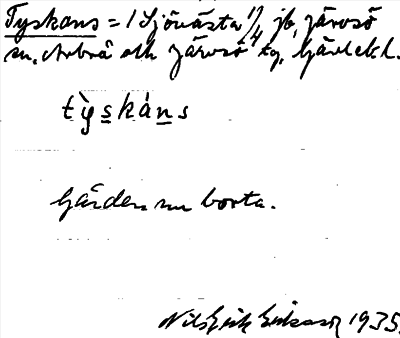 Tyskans = 1 Sjövästa 17/4 jb, Järvsö
sn, Arbrå och Järvsö tg, Gävlebl.
tỳskàns
Gården nu borta.
Nils Erik Eriksson 1935.